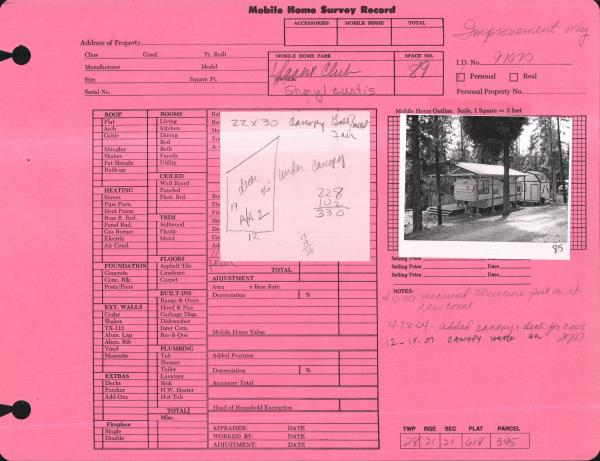 Mobile Home Survey Record
ACCESSORIES MOBILE HOME TOTAL
Improvement only
Address of Property
Class Cond. Yr. Built
Manufacturer Model
Size Square Ft.
Serial No.
MOBILE HOME PARK
SPACE NO.
Club
89
OWNER:
Sheryl Curtis
I.D. No. 91070
Personal Real
Personal Property No.
Mobile Home Outline. Scale, 1 Square = 2 feet
ROOF
Flat
Arch
Gable
Shingles
Shakes
Pat Shingle
Built-up
HEATING
Stoves
Pipe Furn.
Heat Pump
Base B. Rad.
Panel Rad.
Gas Burner
Electric
Air Cond.
FOUNDATION
Concrete
Conc. Blk.
Posts/Piers
EXT. WALLS
Cedar
Shakes
TX-111
Alum. Lap
Alum. Rib
Vinyl
Masonite
EXTRAS
Decks
Pondue
Add-Ons
Fireplace
Single
Double
ROOMS
Living
Kitchen
Dining
Bed
Bath
Family
Utility
CEILED
Wall Board
Paneled
Plast. Brd.
TRIM
Softwood
Plastic
Metal
FLOORS
Asphalt Tile
Linoleum
Carpet
BUILT-INS
Range & Oven
Hood & Fan
Garbage Disp.
Dishwasher
Inter Com.
Bar-B-Que
PLUMBING
Tub
Shower
Toilet
Lavatory
Sink
H.W. Heater
Hot Tub
TOTAL
Misc.
22 x 30 canopy
Fair
deck
under canopy
19
A/S 2
12
228
102
330
TOTAL
ADJUSTMENT
Area x Base Rate
Depreciation %
Mobile Home Value
Added Features
Depreciation %
Accessory Total
Head of Household Exemption
APPRAISER: DATE
WORKED BY: DATE
ADJUSTMENT: DATE
85
Selling Price Date
Selling Price Date
NOTES:
4-10-00 measured structure - put on at
new cost
4-28-04 - added canopy + deck for 2005
12-18-07 CANOPY
TWP RGE SEC PLAT PARCEL
28 21 21 618 345